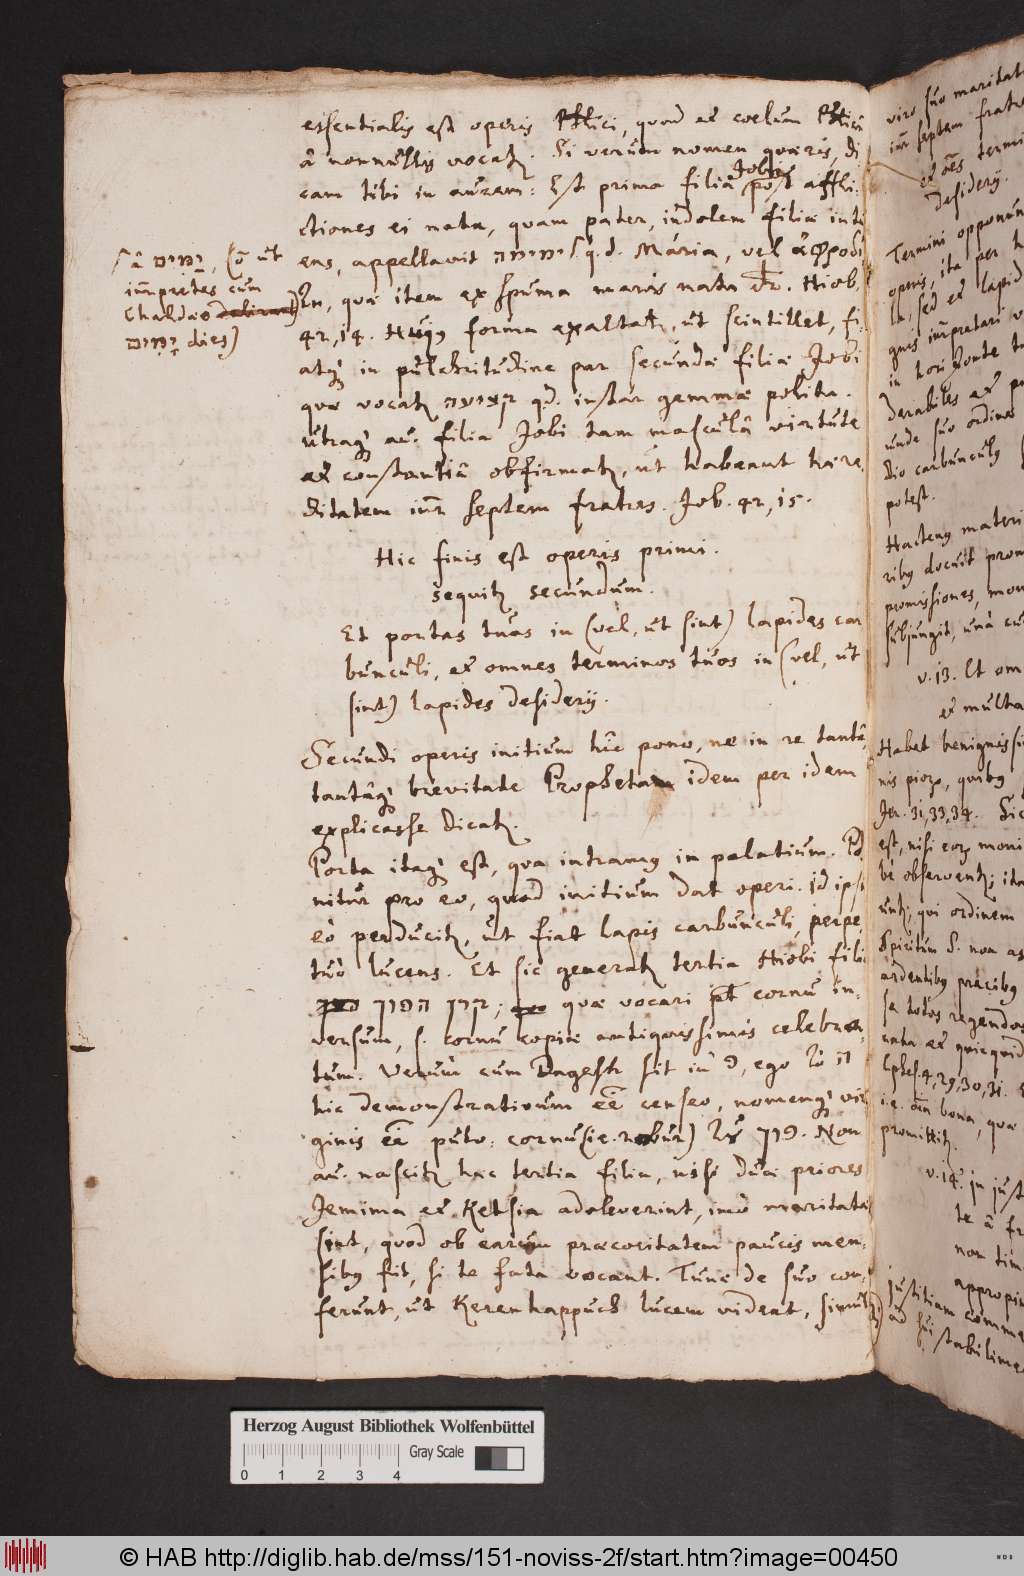 essentialis est operis Phīici, quod et coelum Phīicū
â nonnullis vocatꝛ. Si verum nomen quæris, di
cam tibi in aurem: Est prima filia Jobi post affli-
ctiones ei nata, quam pater, indolem filiæ inti
ens, appellavit ימימה q.d. Maria, vel ἀφροδί
τη, quæ item ex spuma maris nata dr. Hiob.
42, 14. Huiꝰ forma exaltatꝛ, ut scintillet, fi-
atqꝫ in pulchritudine par secundæ filiæ Jobi
quæ vocatꝛ קציעה q.d. instar gemmæ polita.
utraqꝫ au. filia Jobi tam masculâ virtute
et constantiâ obfirmatꝛ, ut habeant hære
ditatem inr̄ septem fratres. Job. 42, 15.
â יַמִּים, (nō ut
inr̄pretes cum
Chaldæo
יָמִים dies)
Hic finis est operis primi.
Sequitꝛ secundum.
Et portas tuas in (vel, ut sint) lapides car
bunculi, et omnes terminos tuos in (vel, ut
sint) lapides desiderij.
Secundi operis initium hîc pono, ne in re tantâ,
tantâqꝫ brevitate Prophetam idem per idem
explicasse dicatꝛ.
Porta itaqꝫ est, qua intramꝰ in palatium. Po
nitur pro eo, quod initium dat operi. Id ipsū
eò perducitꝛ, ut fiat lapis carbunculi, perpe
tuò lucens. Et sic generatꝛ tertia Hiobi filia
קרן הפוך; quæ vocari pt̄ cornu in-
versum, s. cornu copiæ antiquissimis celebra-
tum. Verùm cum Dagesh sit in פ, ego τὸ ה
hic demonstrativum eē censeo, nomenqꝫ vir
ginis eē puto: cornu (i.e. robur) τοῦ פוך. Non
au. nascitꝛ hæc tertia filia, nisi duæ priores
Jemima et Ketsia adoleverint, imò maritatæ
sint, quod ob earum præcocitatem paucis men-
sibꝰ fit, si te fata vocant. Tunc de suo con-
ferunt, ut Kerenhappuch lucem videat, simul
viro suo maritat
inr̄ septem fratr
et oēs termi
desiderij.
Termini opponun
operis, ita per
la, sed et lapid
gnes inr̄pretari v
in horizonte t
derabiles et p
unde suo ordine
dio carbunculꝰ
potest.
Hactenꝰ materi
ribꝰ docuit prom
promissiones, mon
subjungit, unà cu
v. 13. Et om
et multa
Habet benignissi
nis pioꝝ, quibꝰ
Jer. 31, 33, 34. Sic
est, nisi eoꝝ moni
bè observentꝛ; ita
untꝛ; qui ordinem
Spiritum S. non as
ardentibꝰ precibꝰ
se totos regendos
rata et quicquid
Ephes. 4, 29, 30, 31.
i.e. oīa bona, quæ
promittit.
v. 14. in just
te â fr
non tim
appropin
justitiam comme
ad sui stabilime
Herzog August Bibliothek Wolfenbüttel
Gray Scale
0 1 2 3 4
© HAB http://diglib.hab.de/mss/151-noviss-2f/start.htm?image=00450